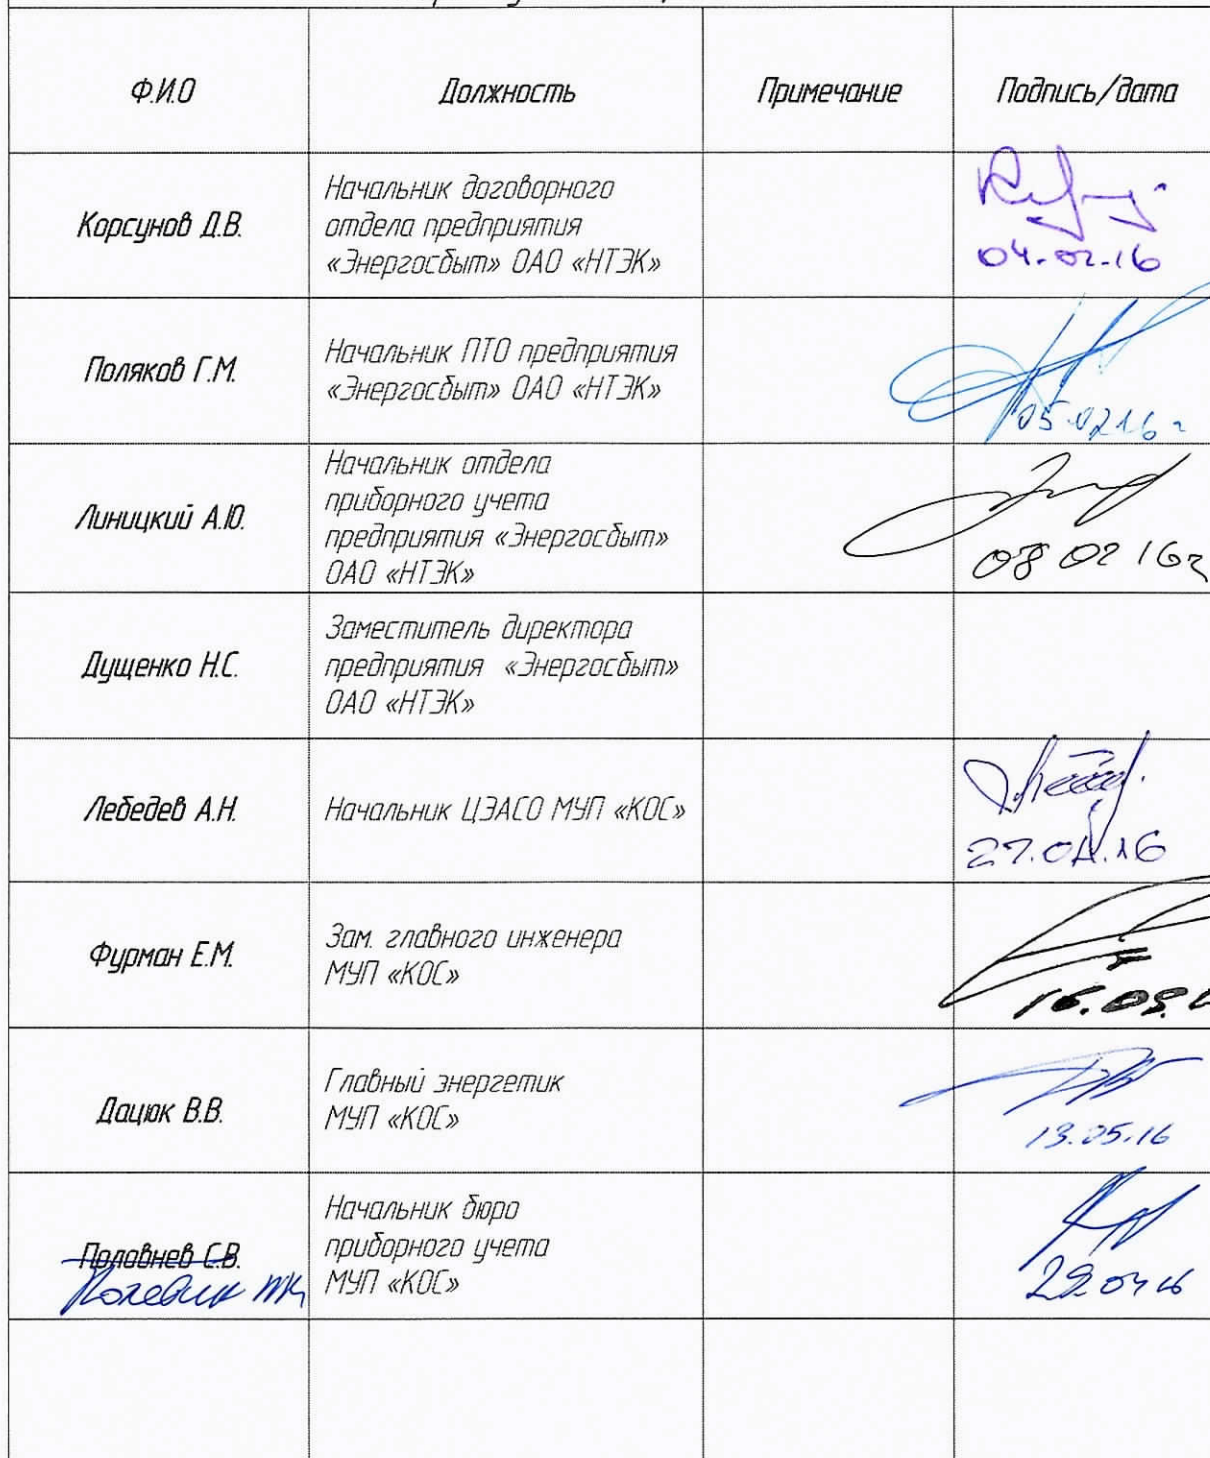 Ф.И.О
Должность
Примечание
Подпись/дата
Корсунов Д.В.
Начальник договорного
отдела предприятия
«Энергосбыт» ОАО «НТЭК»
04.02.16
Поляков Г.М.
Начальник ПТО предприятия
«Энергосбыт» ОАО «НТЭК»
05.02.16г
Линицкий А.Ю.
Начальник отдела
приборного учета
предприятия «Энергосбыт»
ОАО «НТЭК»
08 02 16г
Дущенко Н.С.
Заместитель директора
предприятия «Энергосбыт»
ОАО «НТЭК»
Лебедев А.Н.
Начальник ЦЭАСО МУП «КОС»
Фурман Е.М.
Зам. главного инженера
МУП «КОС»
Дацюк В.В.
Главный энергетик
МУП «КОС»
13.05.16
Половнев С.В.
Начальник бюро
приборного учета
МУП «КОС»